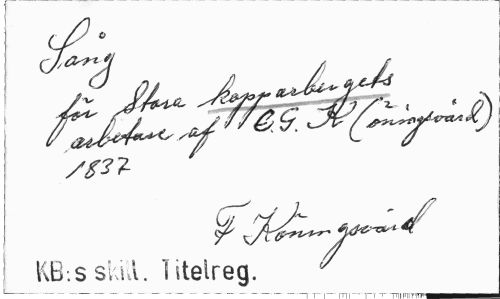 Sång
för Stora kopparbergets
arbetare af C.G. K(öningsvärd)
1837
F Köningsvärd
KB:s skill. Titelreg.